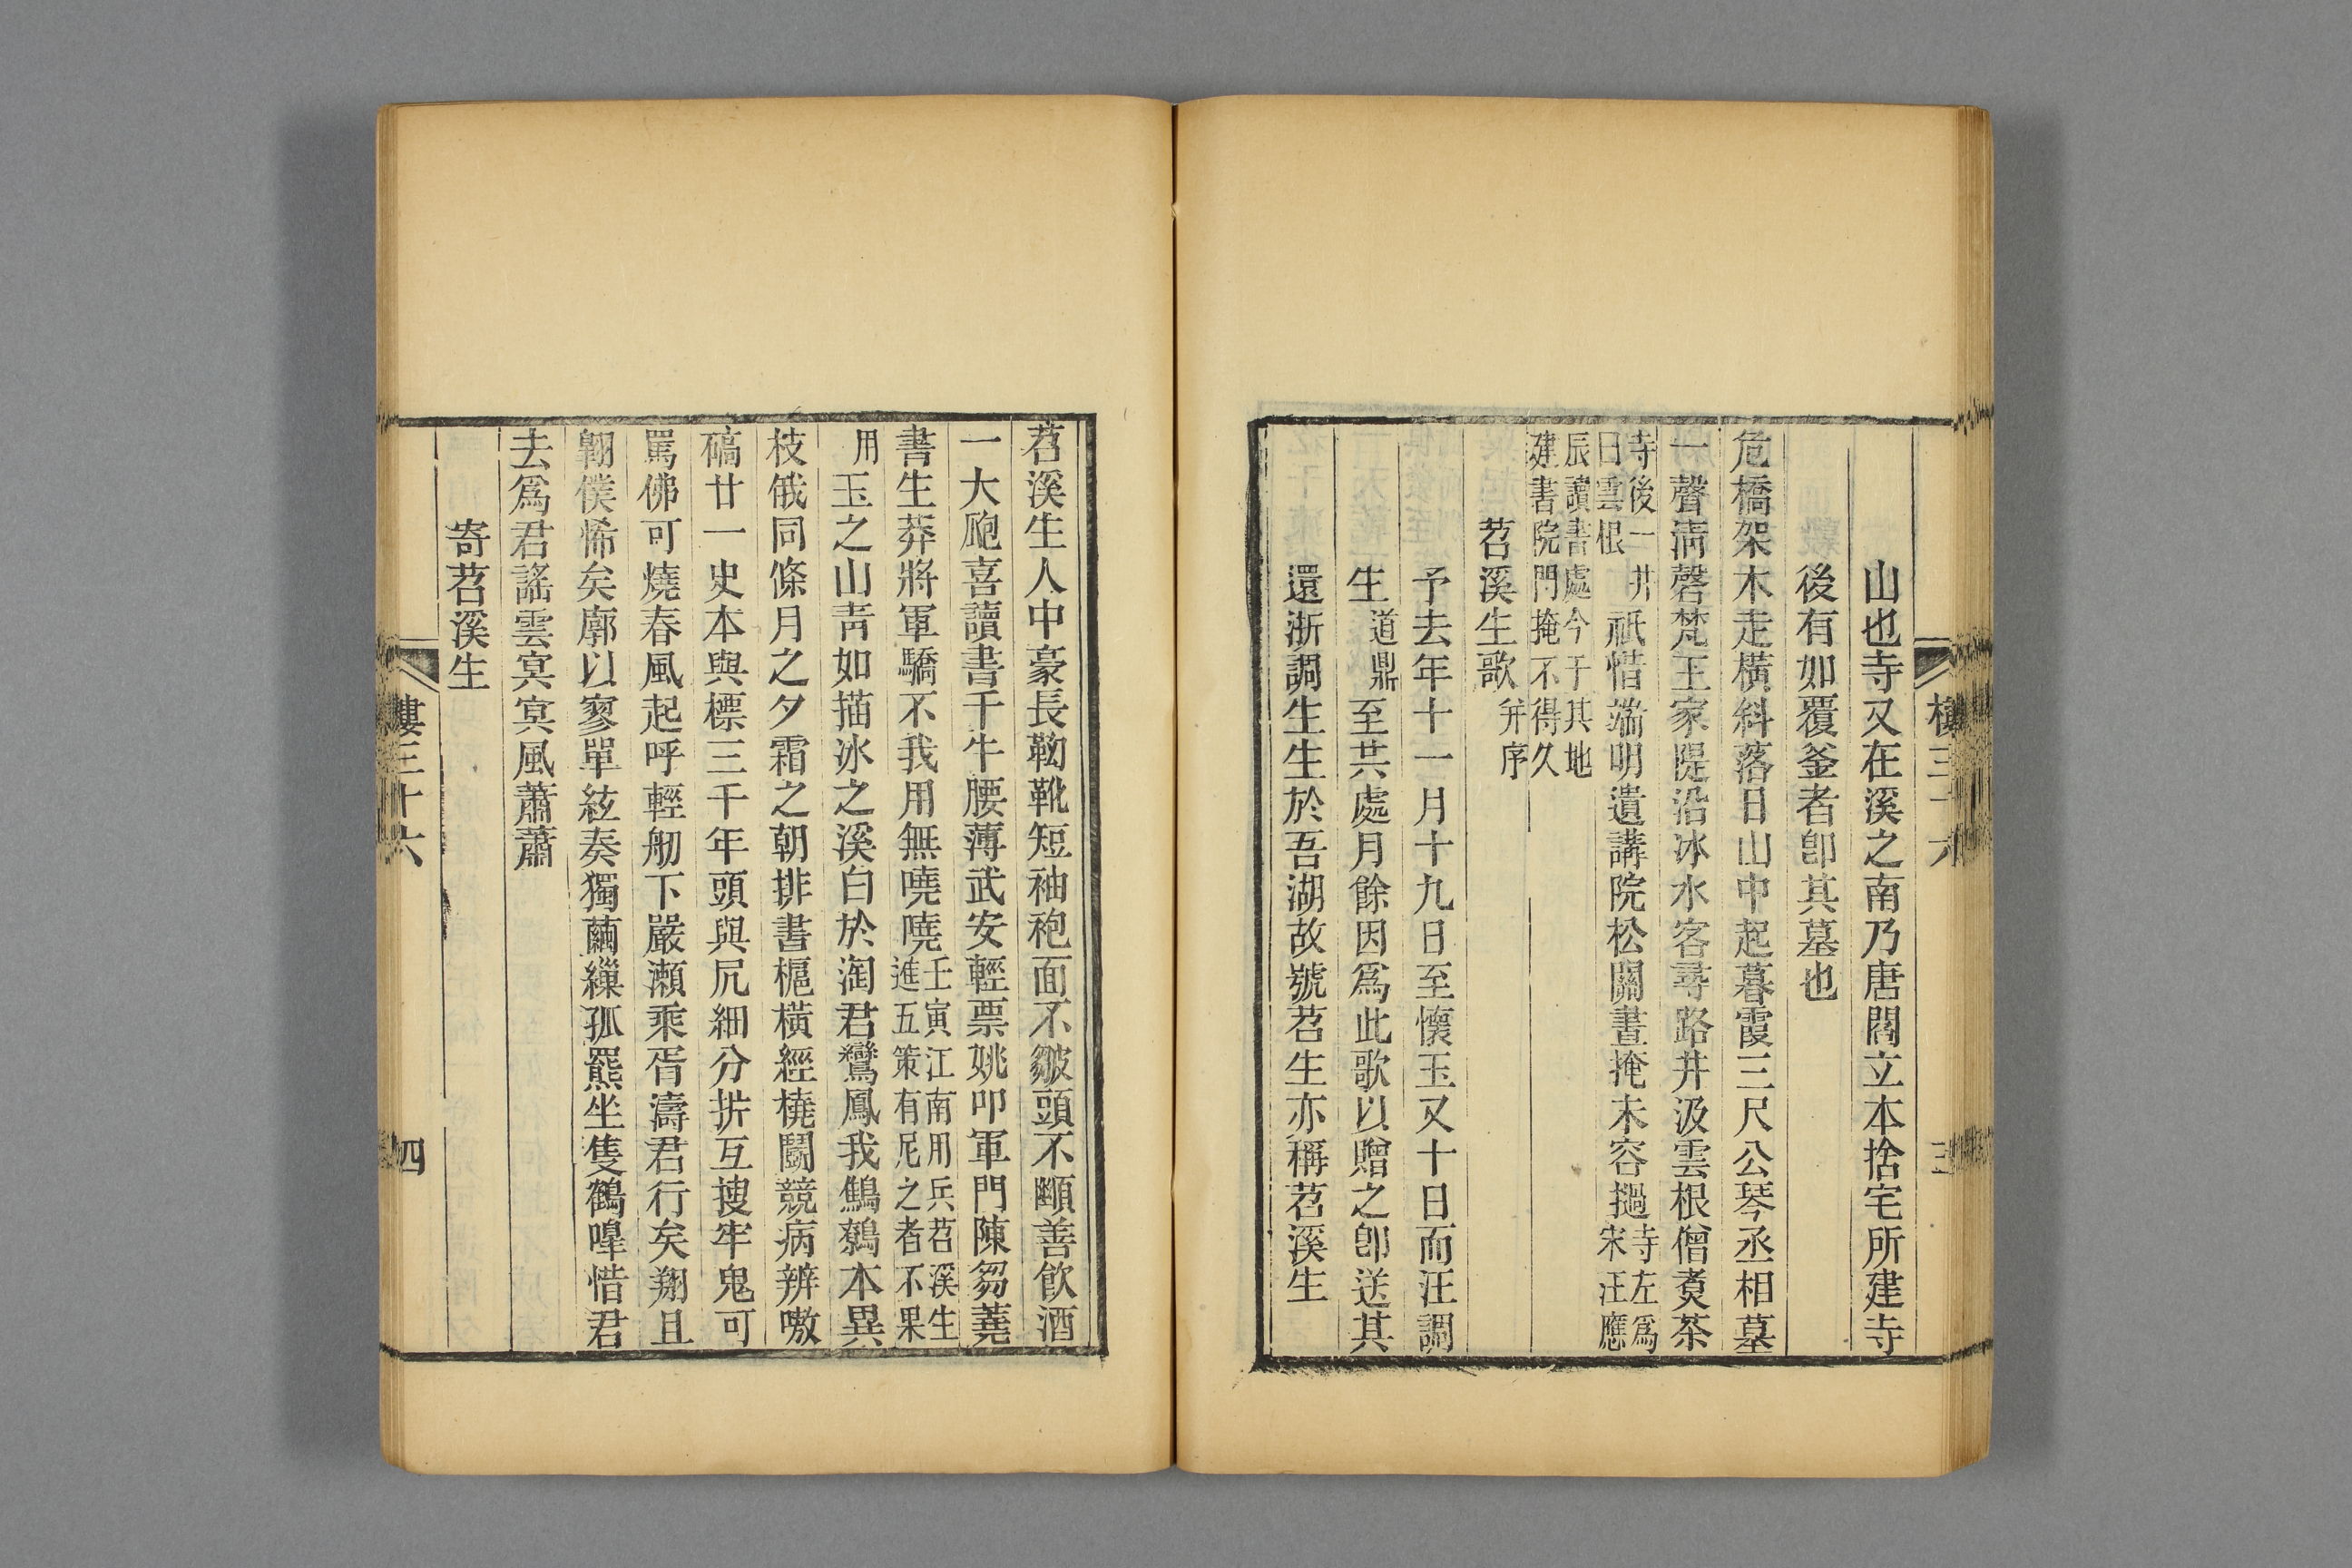 山也寺又在溪之南乃唐閻立本捨宅所建寺
後有如覆釜者卽其墓也
危橋架木走橫斜落日山中起暮霞三尺公琴丞相墓
一聲淸磬梵王家隄沿冰水客尋路井汲雲根僧煑茶
寺後一井
曰雲根
祇惜端明遺講院松關晝掩未容撾
寺左爲
宋汪應
辰讀書處今于其地
建書院門掩不得久
苕溪生歌
幷序
予去年十一月十九日至懷玉又十日而汪調
生
道鼎
至共處月餘因爲此歌以贈之卽送其
還浙調生生於吾湖故號苕生亦稱苕溪生
樓三十六
三
苕溪生人中豪長靿靴短袖袍面不皺頭不顣善飮酒
一大瓟喜讀書千牛腰薄武安輕票姚叩軍門陳芻蕘
書生莽將軍驕不我用無嘵嘵
壬寅江南用兵苕溪生
進五策有尼之者不果
用
玉之山靑如描冰之溪白於淘君鸞鳳我鷦鷯本異
枝俄同條月之夕霜之朝排書榹橫經橈鬭競病辨嗷
碻廿一史本與標三千年頭與尻細分拆互搜牢鬼可
罵佛可燒春風起呼輕舠下嚴瀨乘胥濤君行矣翔且
翺僕悕矣廓以寥單絃奏獨蘭繅孤羆坐隻鶴嘷惜君
去爲君謠雲冥冥風蕭蕭
寄苕溪生
樓三十六
四